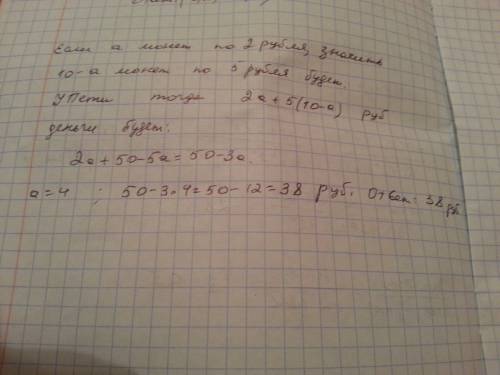 Если а может по 2 рубля, значить
10-а может по 5 рубля будет.
У Пети тогда 2а+5(10-а) руб
деньги будет:
2а+50-5а=50-3а.
а=4 ; 50-3·4=50-12=38 руб. Ответ: 38 руб